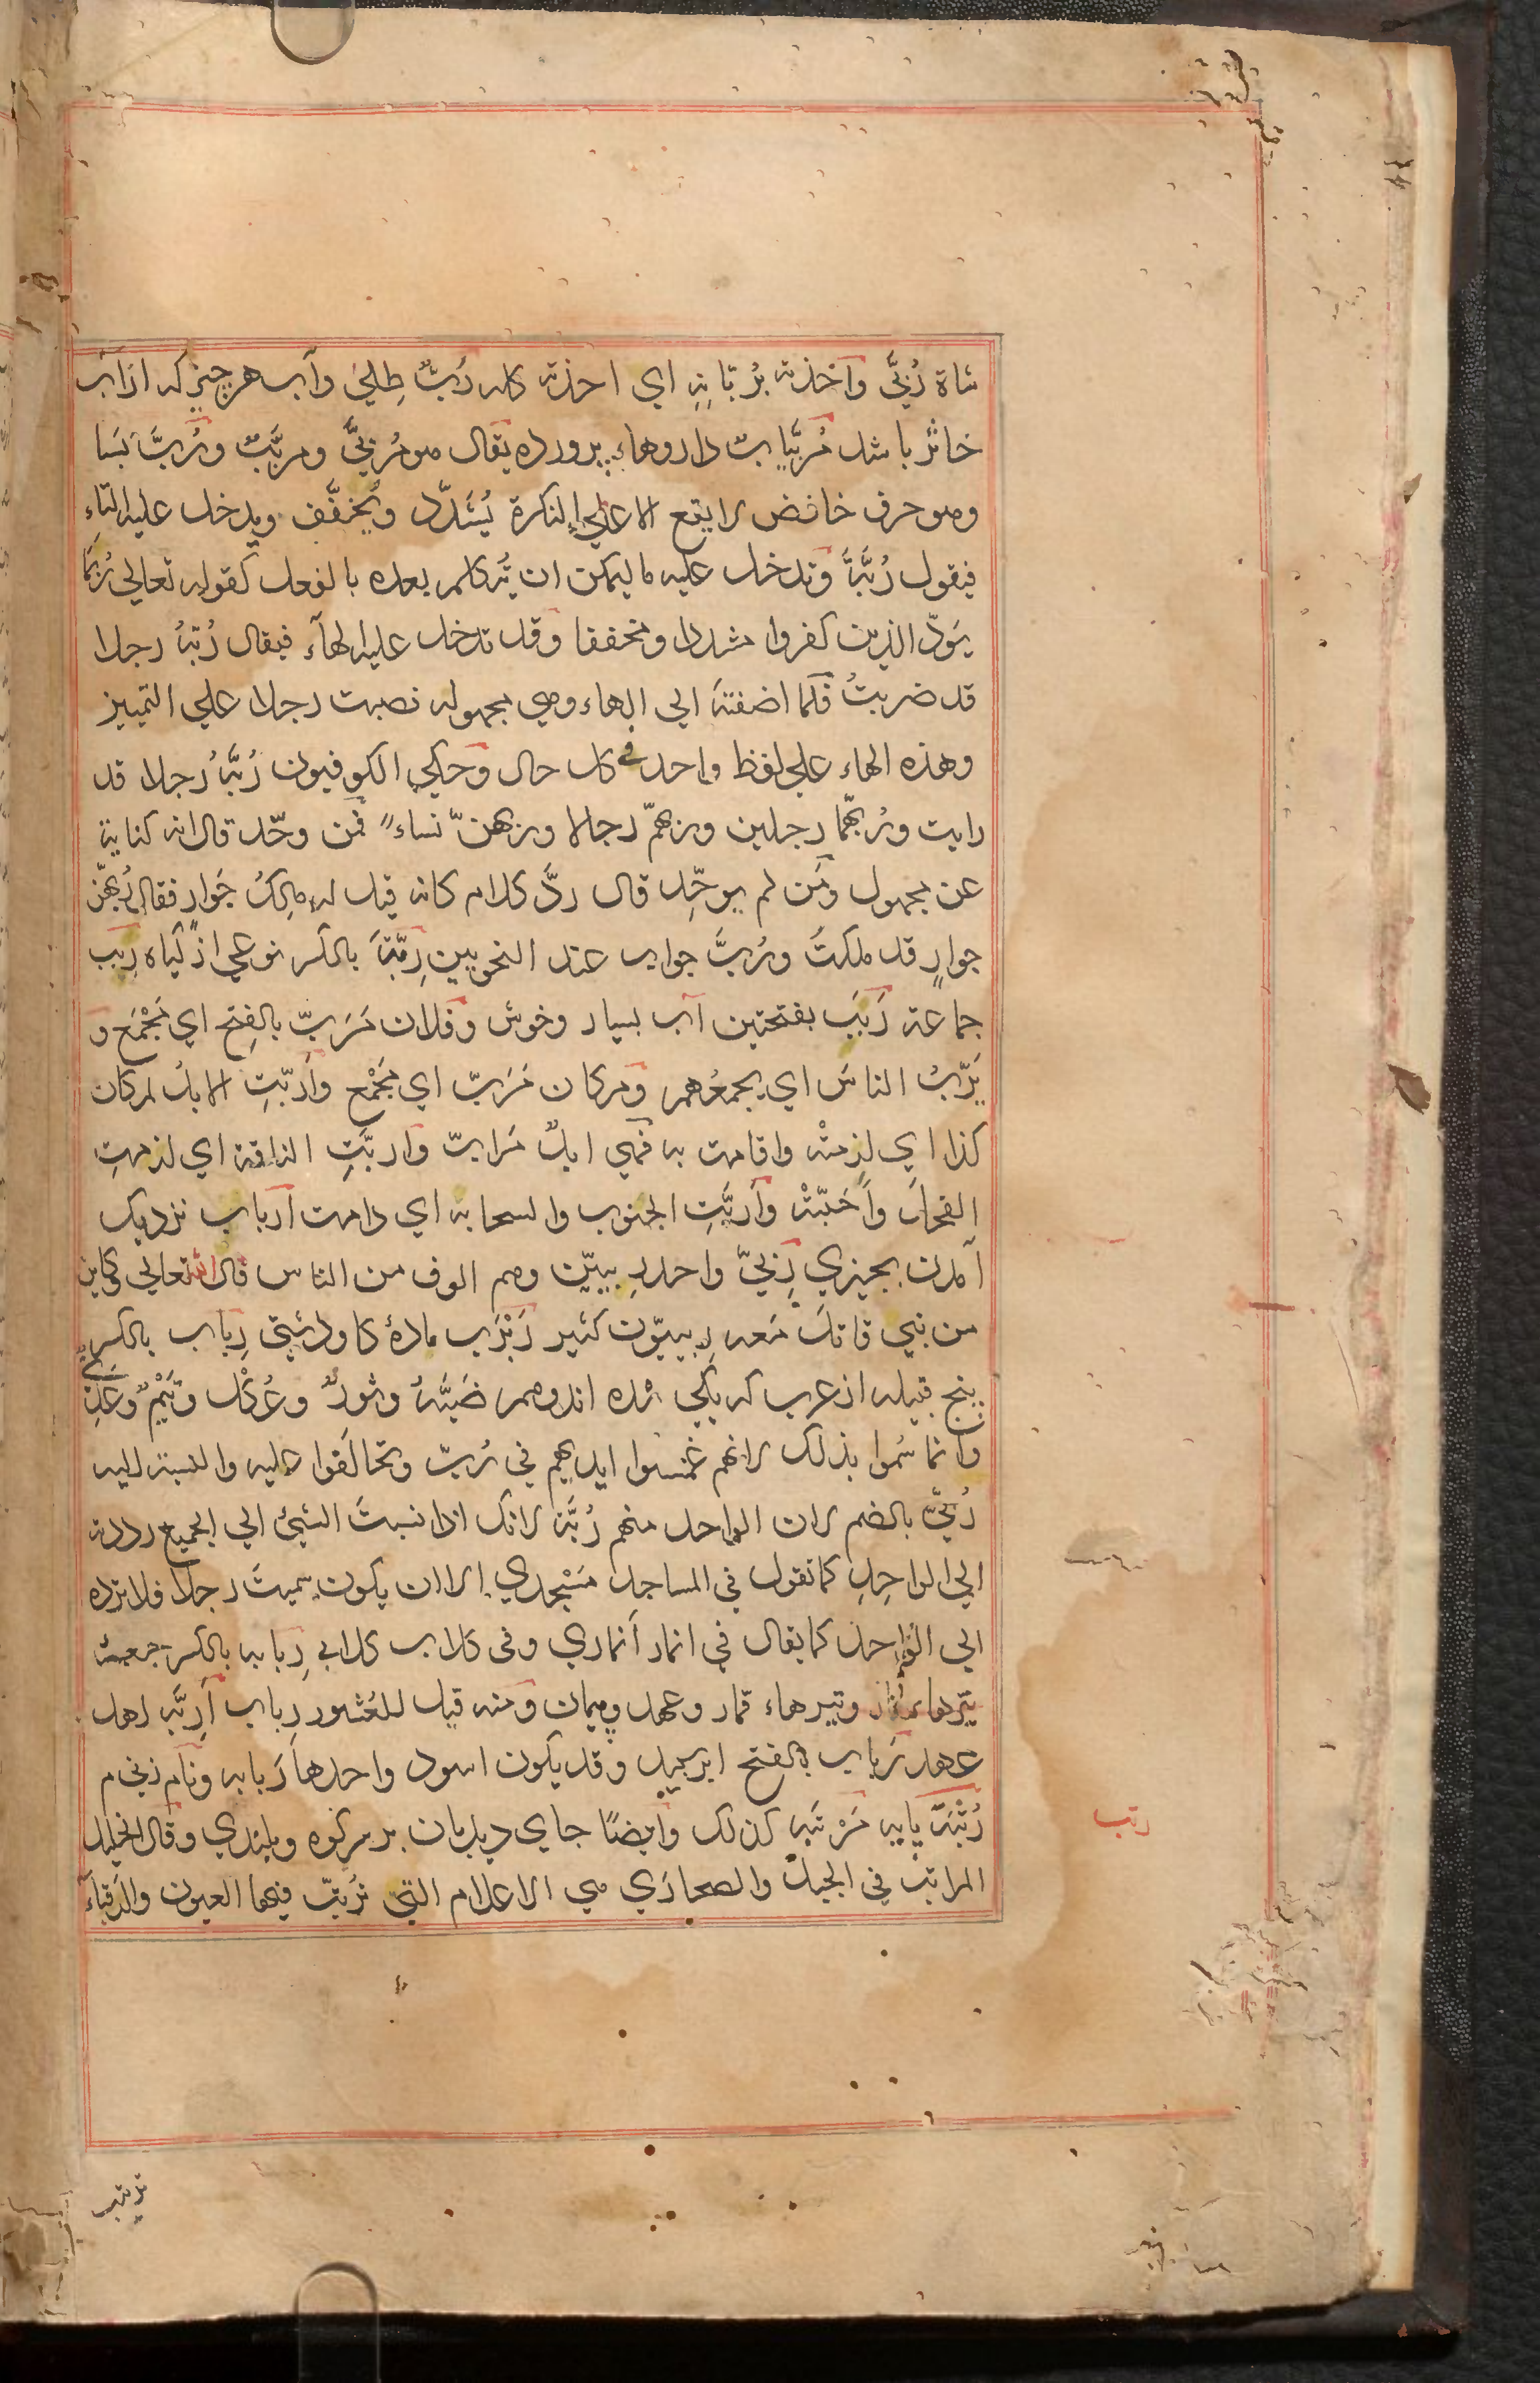 شاة رُبّيَ واخذته برُبّانه اي اخذته كله رُبّ طِلي وآب هر چيز كه از آب
خاثر باشد مُربَّيات داروهاء پرورده يقال هو مُربّيً ومربَّب ورُبَّ بَسا
وهو حرف خافض لا يقع الا علي النكرة يُشدَّد ويُخفَّف ويدخل عليه التاء
فيقول رُبَّةَ وتدخل عليه ما ليمكن ان يتكلم بعده بالفعل كقوله تعالي رُبَمَا
يَودّ الذين كفروا مشددا ومخففا وقد تدخل عليه الهآء فيقال رُبّهُ رجلا
قد ضربتُ فلما اضفتهَ الي الهاء وهي مجهوله نصبت رجلا علي التمييز
وهذه الهاء علي لفظ واحد في كل حال وحكي الكوفيون رُبَّهُ رجلا قد
رايت ورُبهّما رجلين وربهمّ رجالا وربهنّ نساءً فمن وحّد قال انه كناية
عن مجهول ومَن لم يوحّد قال ردَّ كلام كانه قيل له مالكَ جَوارٍ فقال رُبهّن
جوارٍ قد ملكتُ ورُبَّ جواب عند النحويين رِبّة بالكسر نوعي از گياه رِبَب
جماعة رَبَبَ بفتحتين آب بسيار وخوش وفلان مَرَبّ بالفتح اي مَجْمَع و
يَرُبّ الناسَ اي يجمعُهم ومكان مَرَبّ اي مَجْمْع وآرَبّتِ الابلُ لمكان
كذا اي لزمتْه واقامت به فهي ابلٌ مَرابّ واربَّتِ الناقة اي لزمتِ
الفحلَ وآحَبّتْه وآربَّتِ الجنوب والسحابة اي دامت آرباب نزديك
آمدن بچيزي رِبّيّ واحد ربيّين وهم الوف من الناس قال الله تعالي وكاين
من نبي قاتلَ مَعه ربيّون كثير رَبْرَب مادهٔ گاو دشتي رِباب بالكسر
پنج قبيله از عرب كه يكي شده اند وهم ضَبَّهُ وثورٌ وعُكْل وتَيْمٌ وعَدِيّ
وانما سُموا بذلك لانهم غمسوا ايديهم في رُبّ وتحالَفوا عليه والنسبة اليه
رُبّيّ بالضم لان الواحد منهم رُبَّة لانك اذا نسبتَ الشيئ الي الجميع رددته
الي الواحِدِ كما تقول في المساجد مَسْجدي الا ان يكون سميتَ رجلا فلا ترده
الي الواحد كما يقال في انمار آنماري وفي كلاب كلابي رِبابه بالكسر جعبهٔ
تيرهاء قمار وتيرهاء قمار وعهد وپيمان ومنه قيل للعُشور رِباب آرِبَّه اهل
عهد رَباب بالفتح ابر سپيد وقد يكون اسود واحدها رَبابه ونام زني م
رُتْبَة پايه مَرْتَبه كذلك وآيضًا جاي ديدبان بر سر كوه وبلندي وقال الخليل
المراتب في الجبل والصحارَي هي الاعلام التي تُرَتّب فيها العيون والرقباء
رتب
ترتب